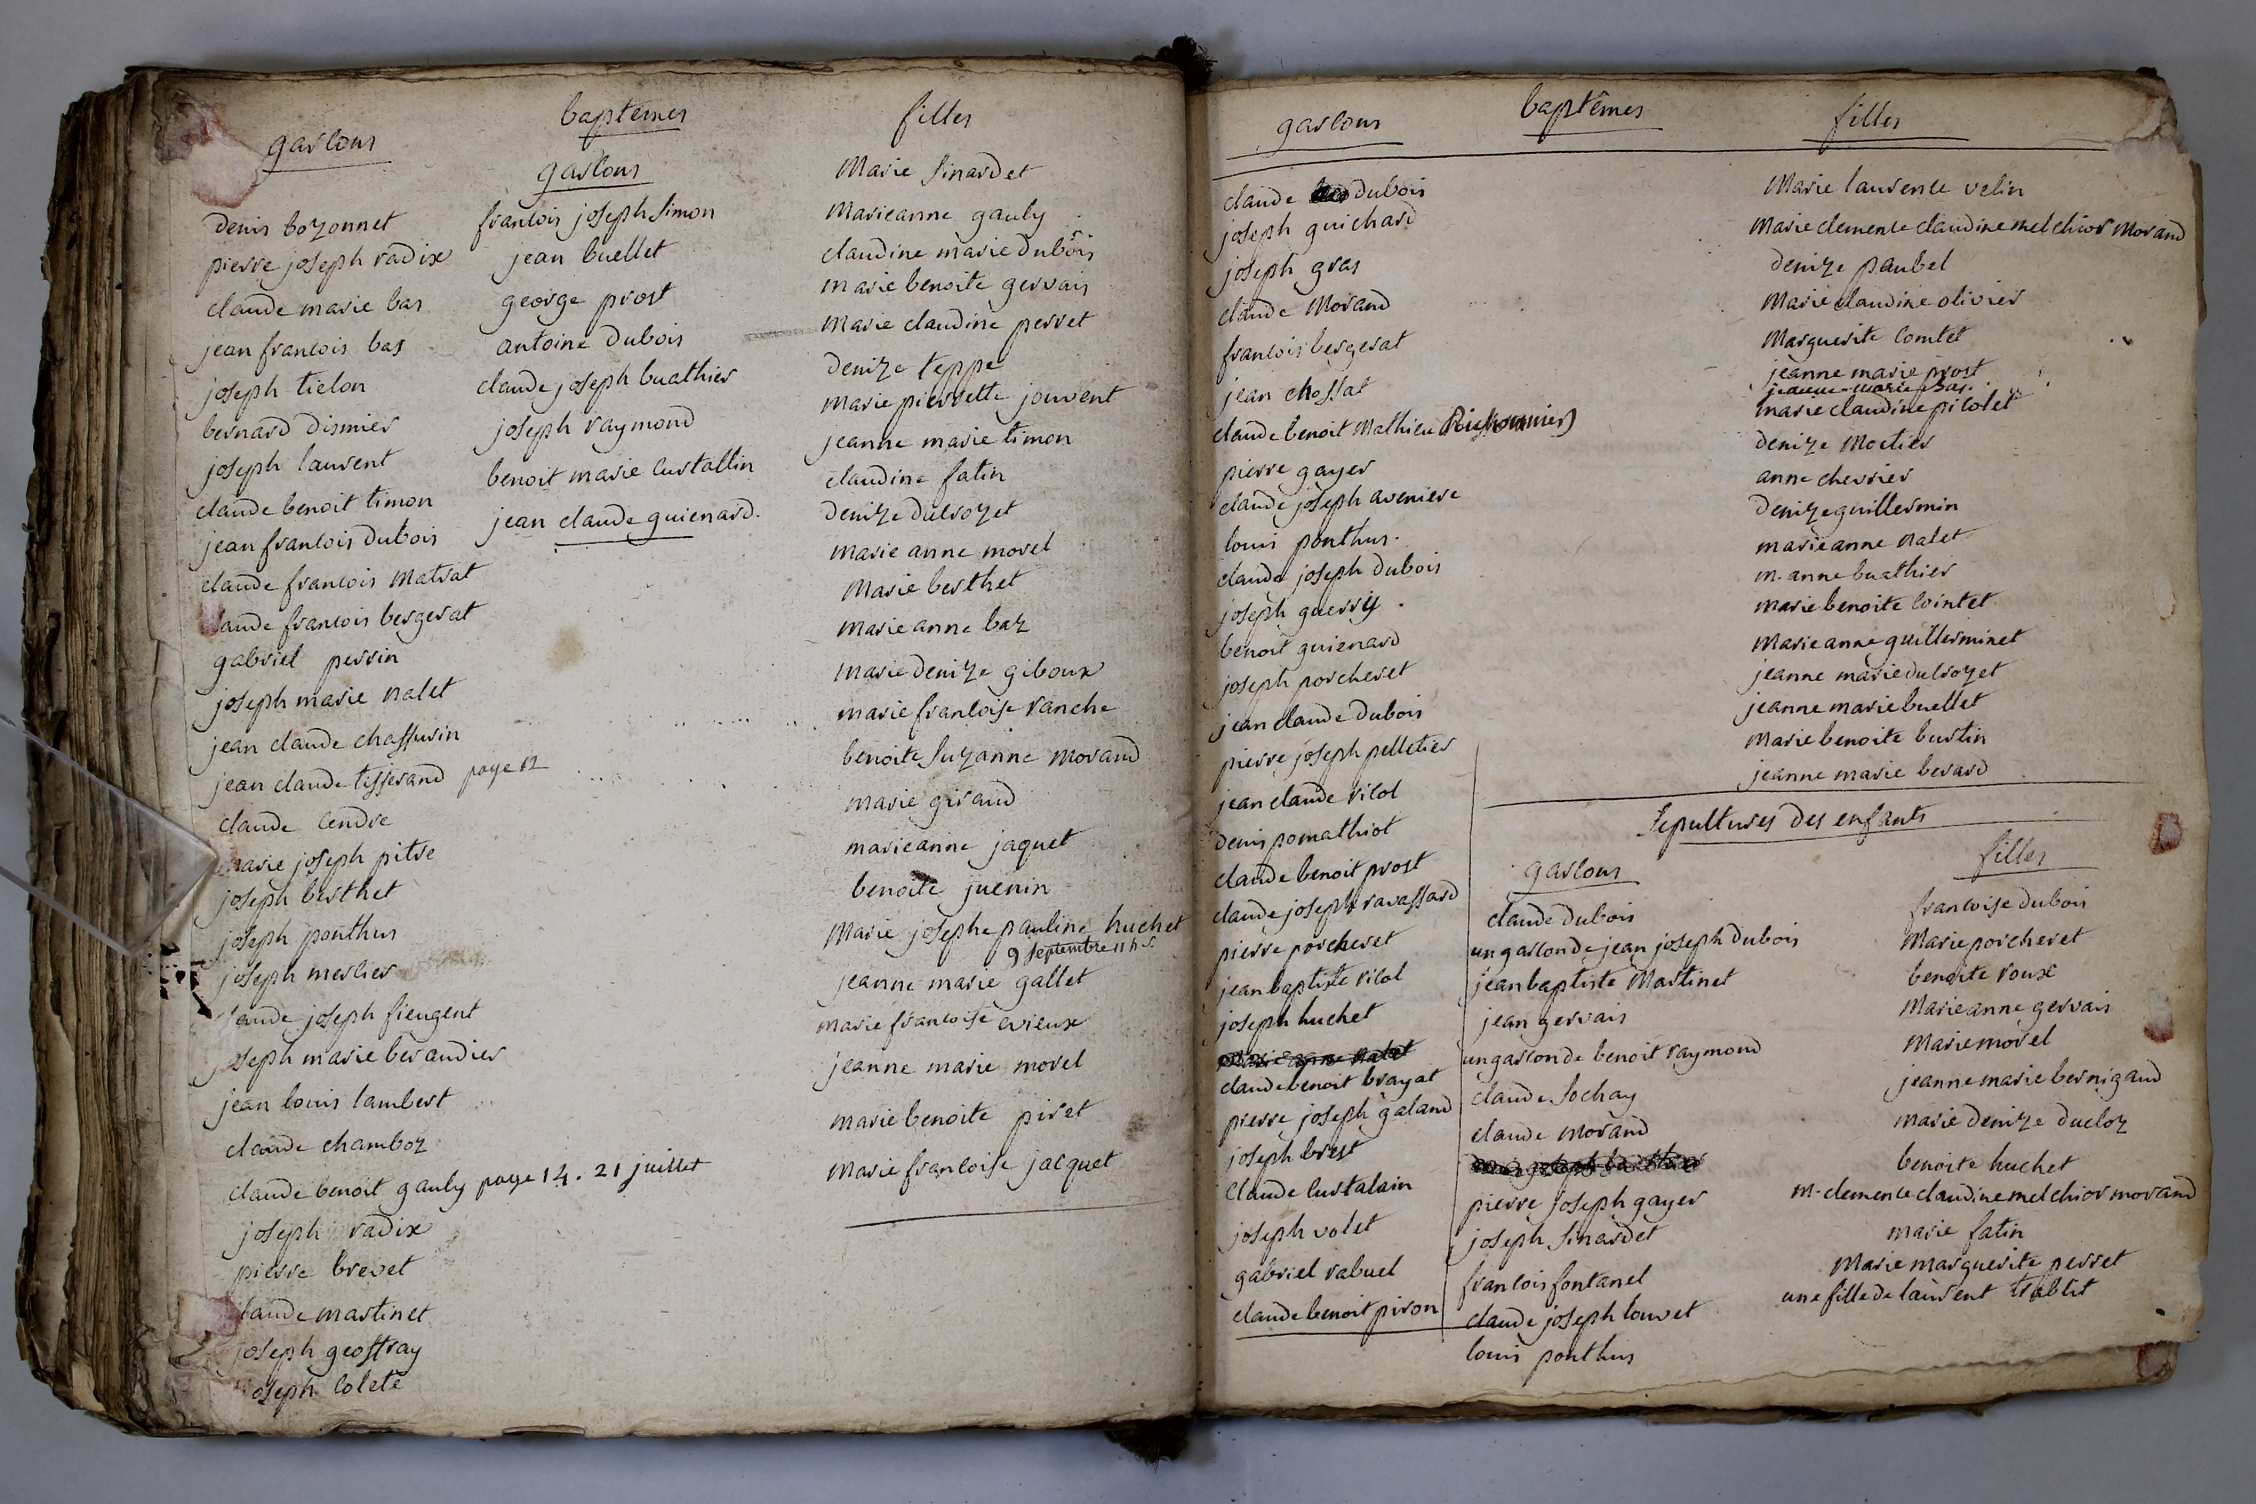 baptêmes
garcons
denis bozonnet
pierre joseph radix
claude marie bas
jean francois bas
joseph tielon
bernard dismier
joseph laurent
claude benoit timon
jean francois dubois
claude francois Matrat
laude francois bergerat
gabriel perrin
joseph marie nalet
jean claude chassurin
jean claude tisserand page 12
claude Cendre
marie joseph pitre
joseph berthet
joseph ponthus
joseph mercier
laude joseph fieugent
joseph marie beraudier
jean louis lambert
claude chamboz
claude benoit gauly page 14. 21 juillet
joseph radix
pierre brevet
laude martinet
joseph geoffray
joseph Colete
garcons
francois joseph Simon
jean buellet
george prost
antoine dubois
claude joseph buathier
joseph raymond
benoit marie Curtallin
jean claude guienard.
filles
Marie Sinardet
Marieanne gauly
claudine marie dubois
marie benoite gervais
Marie claudine perret
denize teppe
Marie pierrette jouvent
jeanne marie timon
claudine fatin
denize ducrozet
marie anne morel
Marie berthet
Marie anne baz
Marie denize giboux
marie francoise ranche
benoite Suzanne Morand
marie giraud
marieanne jaquet
benoite juenin
Marie josephe pauline huchet
9 septembre 11 h.s
jeanne marie gallet
marie francoise evieux
jeanne marie morel
marie benoite piret
Marie francoise jacquet
baptêmes
garcons
claude dubois
joseph guichard
joseph gras
claude Morand
francois bergerat
jean chossat
claude benoit Mathieu
pierre gayer
claude joseph aveniere
louis ponthus.
claude joseph dubois
joseph guerry.
benoit guienard
joseph porcheret
jean claude dubois
pierre joseph pelletier
jean claude ricol
denis pomathiot
claude benoit prost
claude joseph ravassard
pierre porcheret
jean baptiste ricol
joseph huchet
marie anne nalet
claude benoit brayat
pierre joseph galand
joseph brest
Claude Curtalain
joseph volet
gabriel rabuel
claude benoit piron
filles
Marie laurence velin
Marie clemence claudine melchior Morand
denize paubel
Marie claudine olivier
Marguerite Comtet
jeanne marie prost
jeanne marie bas.
marie claudine picolet
denize Mortier
anne chevrier
denize guillermin
marieanne nalet
m. anne buathier
marie benoite Cointet
Marie anne guillerminet
jeanne marie ducrozet
jeanne marie buellet
Marie benoite burtin
jeanne marie berard
Sepultures des enfants
garcons
claude dubois
un garcon de jean joseph dubois
jean baptiste Martinet
jean gervais
un garcon de benoit raymond
claude Sochay
claude Morand
pierre joseph gayer
joseph Sinardet
francois fontanel
claude joseph Couvet
louis ponthus
filles
francoise dubois
Marie porcheret
benoite roux
Marieanne gervais
Marie morel
jeanne marie bernigaud
marie denize ducloz
benoite huchet
m. clemence claudine melchior morand
marie fatin
Marie marguerite perret
une fille de laurent